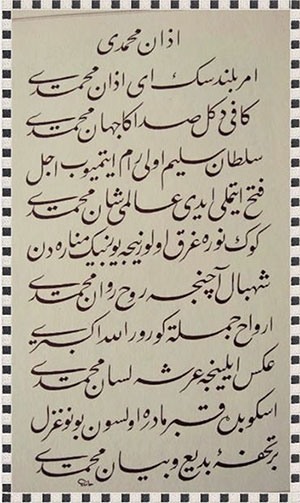 اذان محمدی
امر بلندسك ای اذان محمدی
كافی دكل صداكا جهان محمدی
سلطان سليم اولی رام ايتميوب اجل
فتح ايتملی ايدی عالمی شان محمدی
كوك نوره غرق اولور نيجه يوز بيك مناره دن
شهبال آچنجه روح روان محمدی
ارواح جمله كورور الله اكبری
عكس ايلينجه عرشه لسان محمدی
اسكوبده قبر مادره اولسون بو نو غزل
بر تحفۀ بديع و بيان محمدی